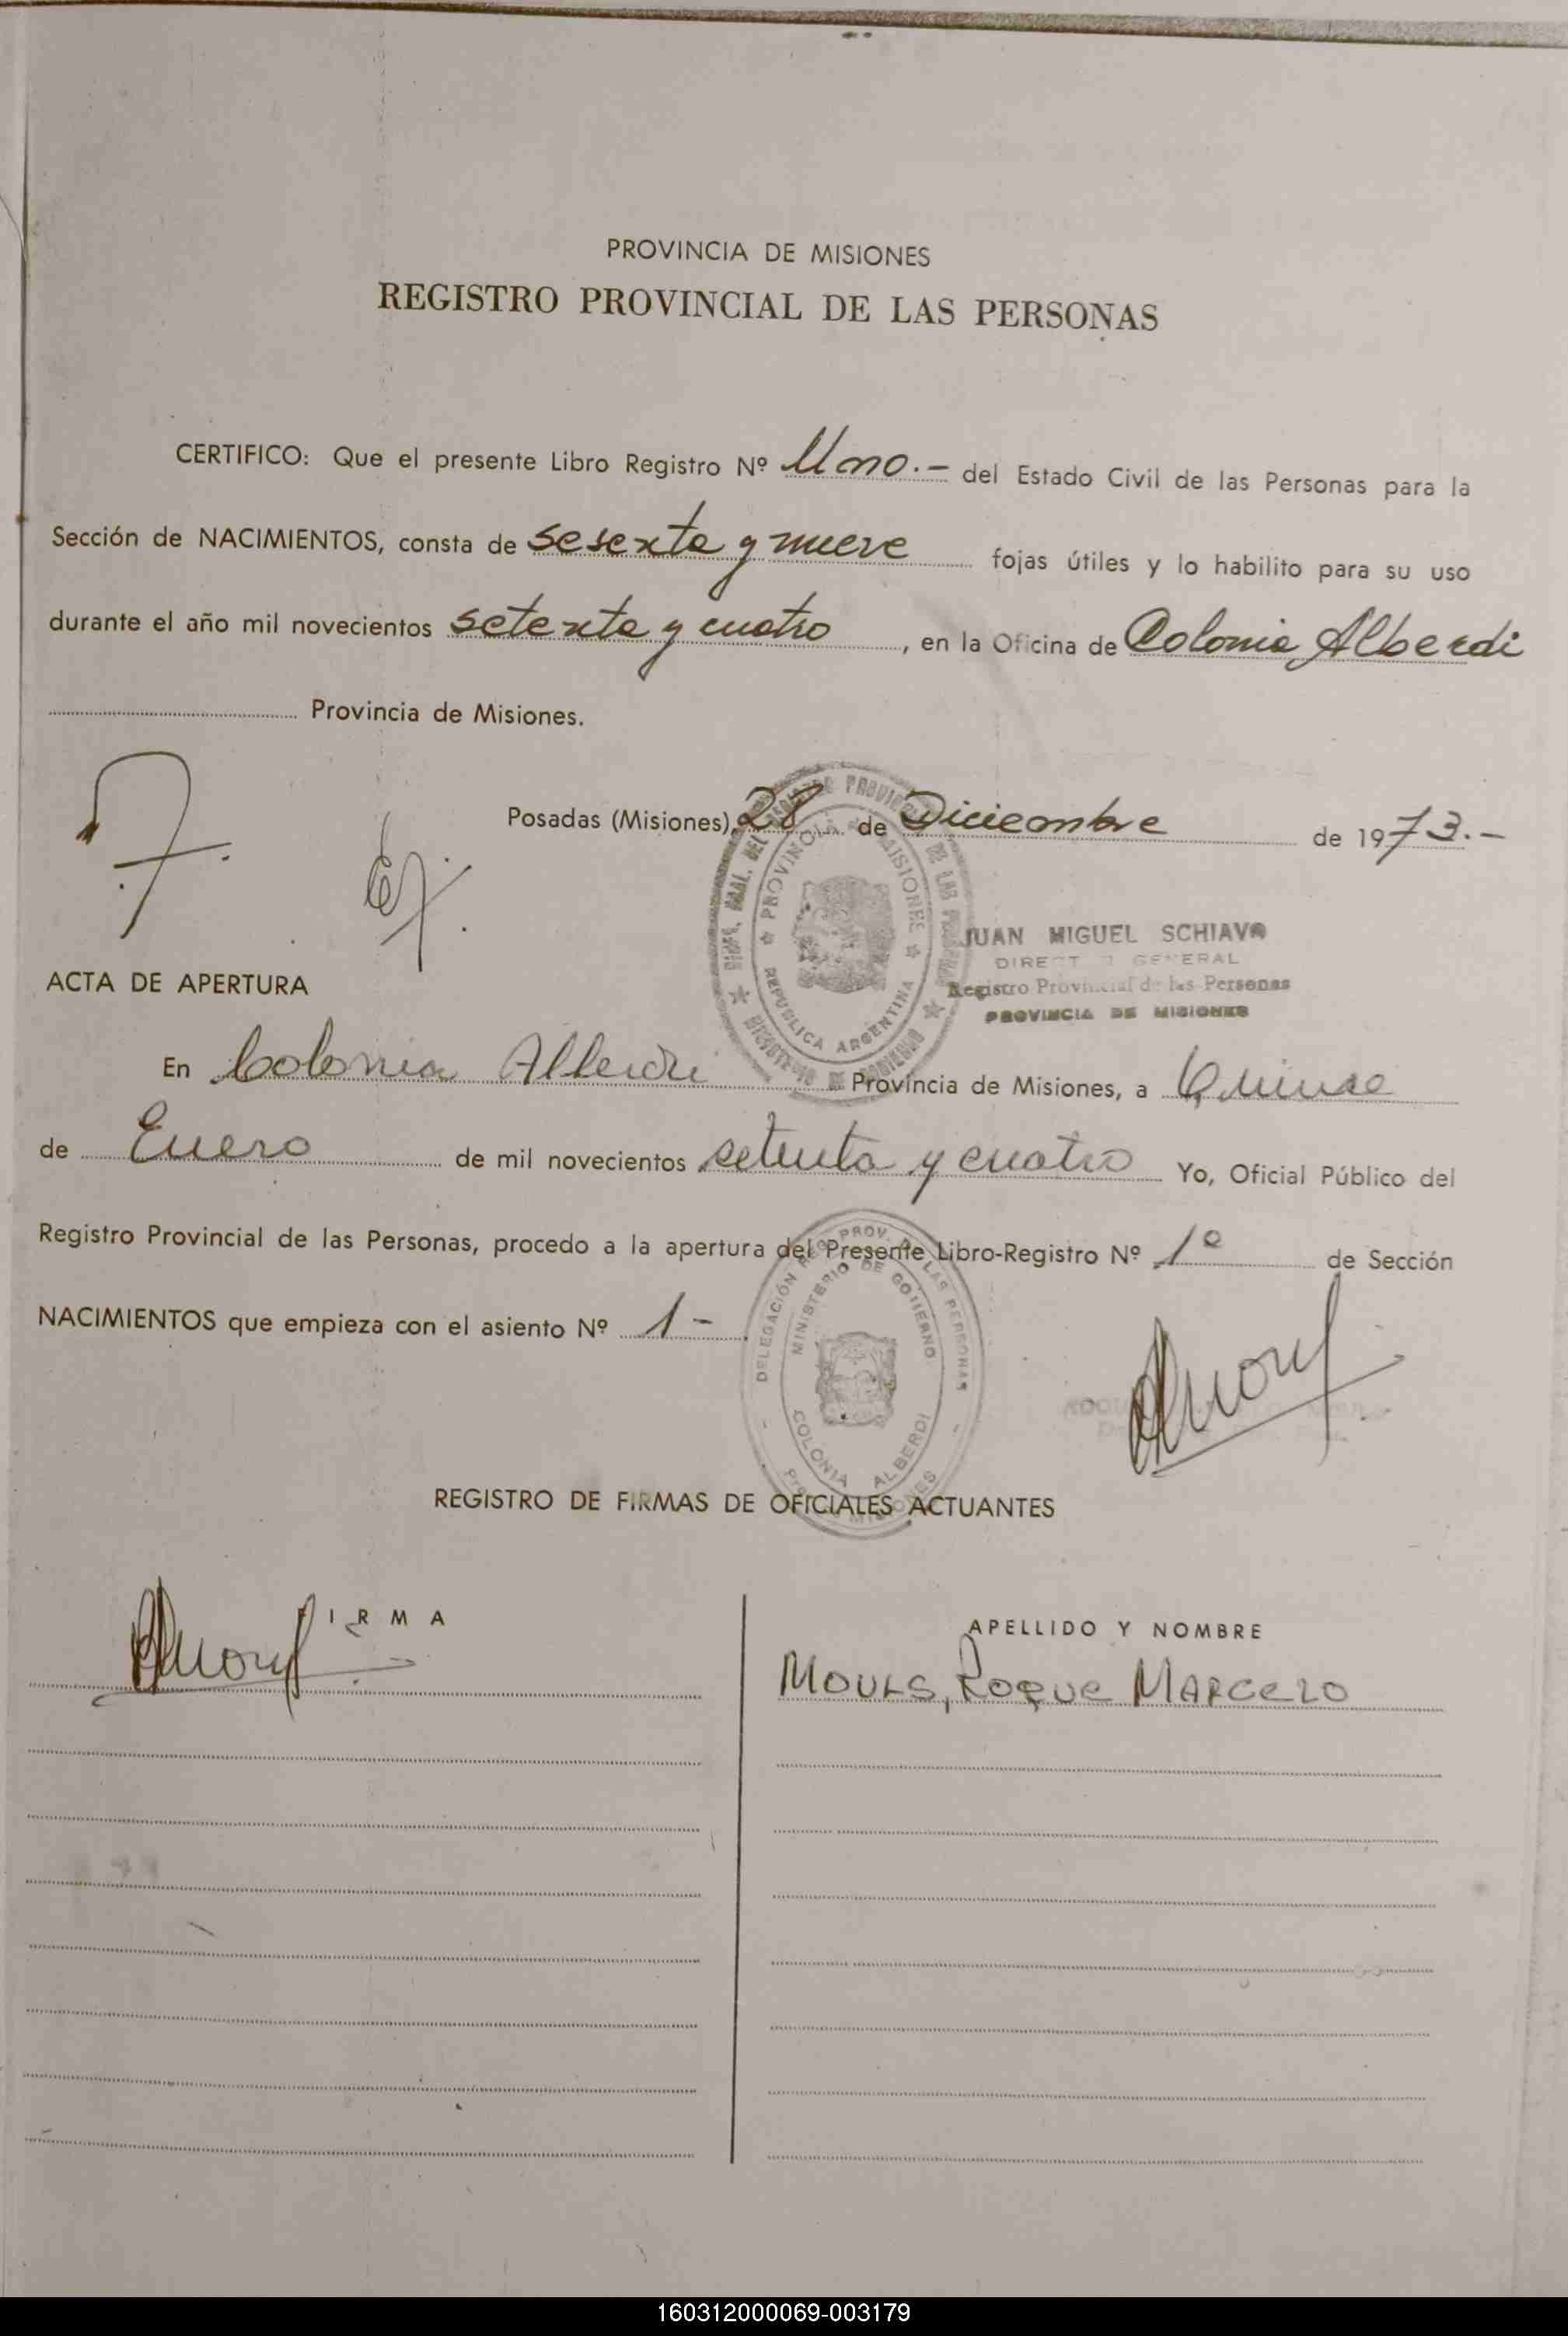 PROVINCIA DE MISIONES
REGISTRO PROVINCIAL DE LAS PERSONAS
CERTIFICO: Que el presente Libro Registro Nº Uno.- del Estado Civil de las Personas para la
Sección de NACIMIENTOS, consta de sesenta y nueve fojas útiles y lo habilito para su uso
durante el año mil novecientos setenta y cuatro, en la Oficina de Colonia Alberdi
Provincia de Misiones.
Posadas (Misiones), 28 de Diciembre de 1973.-
JUAN MIGUEL SCHIAVO
DIRECTOR GENERAL
Registro Provincial de las Personas
PROVINCIA DE MISIONES
PROVINCIA DE MISIONES
REPUBLICA ARGENTINA
ACTA DE APERTURA
En Colonia Alberdi Provincia de Misiones, a Quince
de Enero de mil novecientos setenta y cuatro Yo, Oficial Público del
Registro Provincial de las Personas, procedo a la apertura del Presente Libro-Registro Nº 1º de Sección
NACIMIENTOS que empieza con el asiento Nº 1-
DELEGACIÓN REG. PROV. DE LAS PERSONAS
MINISTERIO DE GOBIERNO
COLONIA ALBERDI
MISIONES
REGISTRO DE FIRMAS DE OFICIALES ACTUANTES
FIRMA
APELLIDO Y NOMBRE
ROQUE MARCELO
160312000069-003179